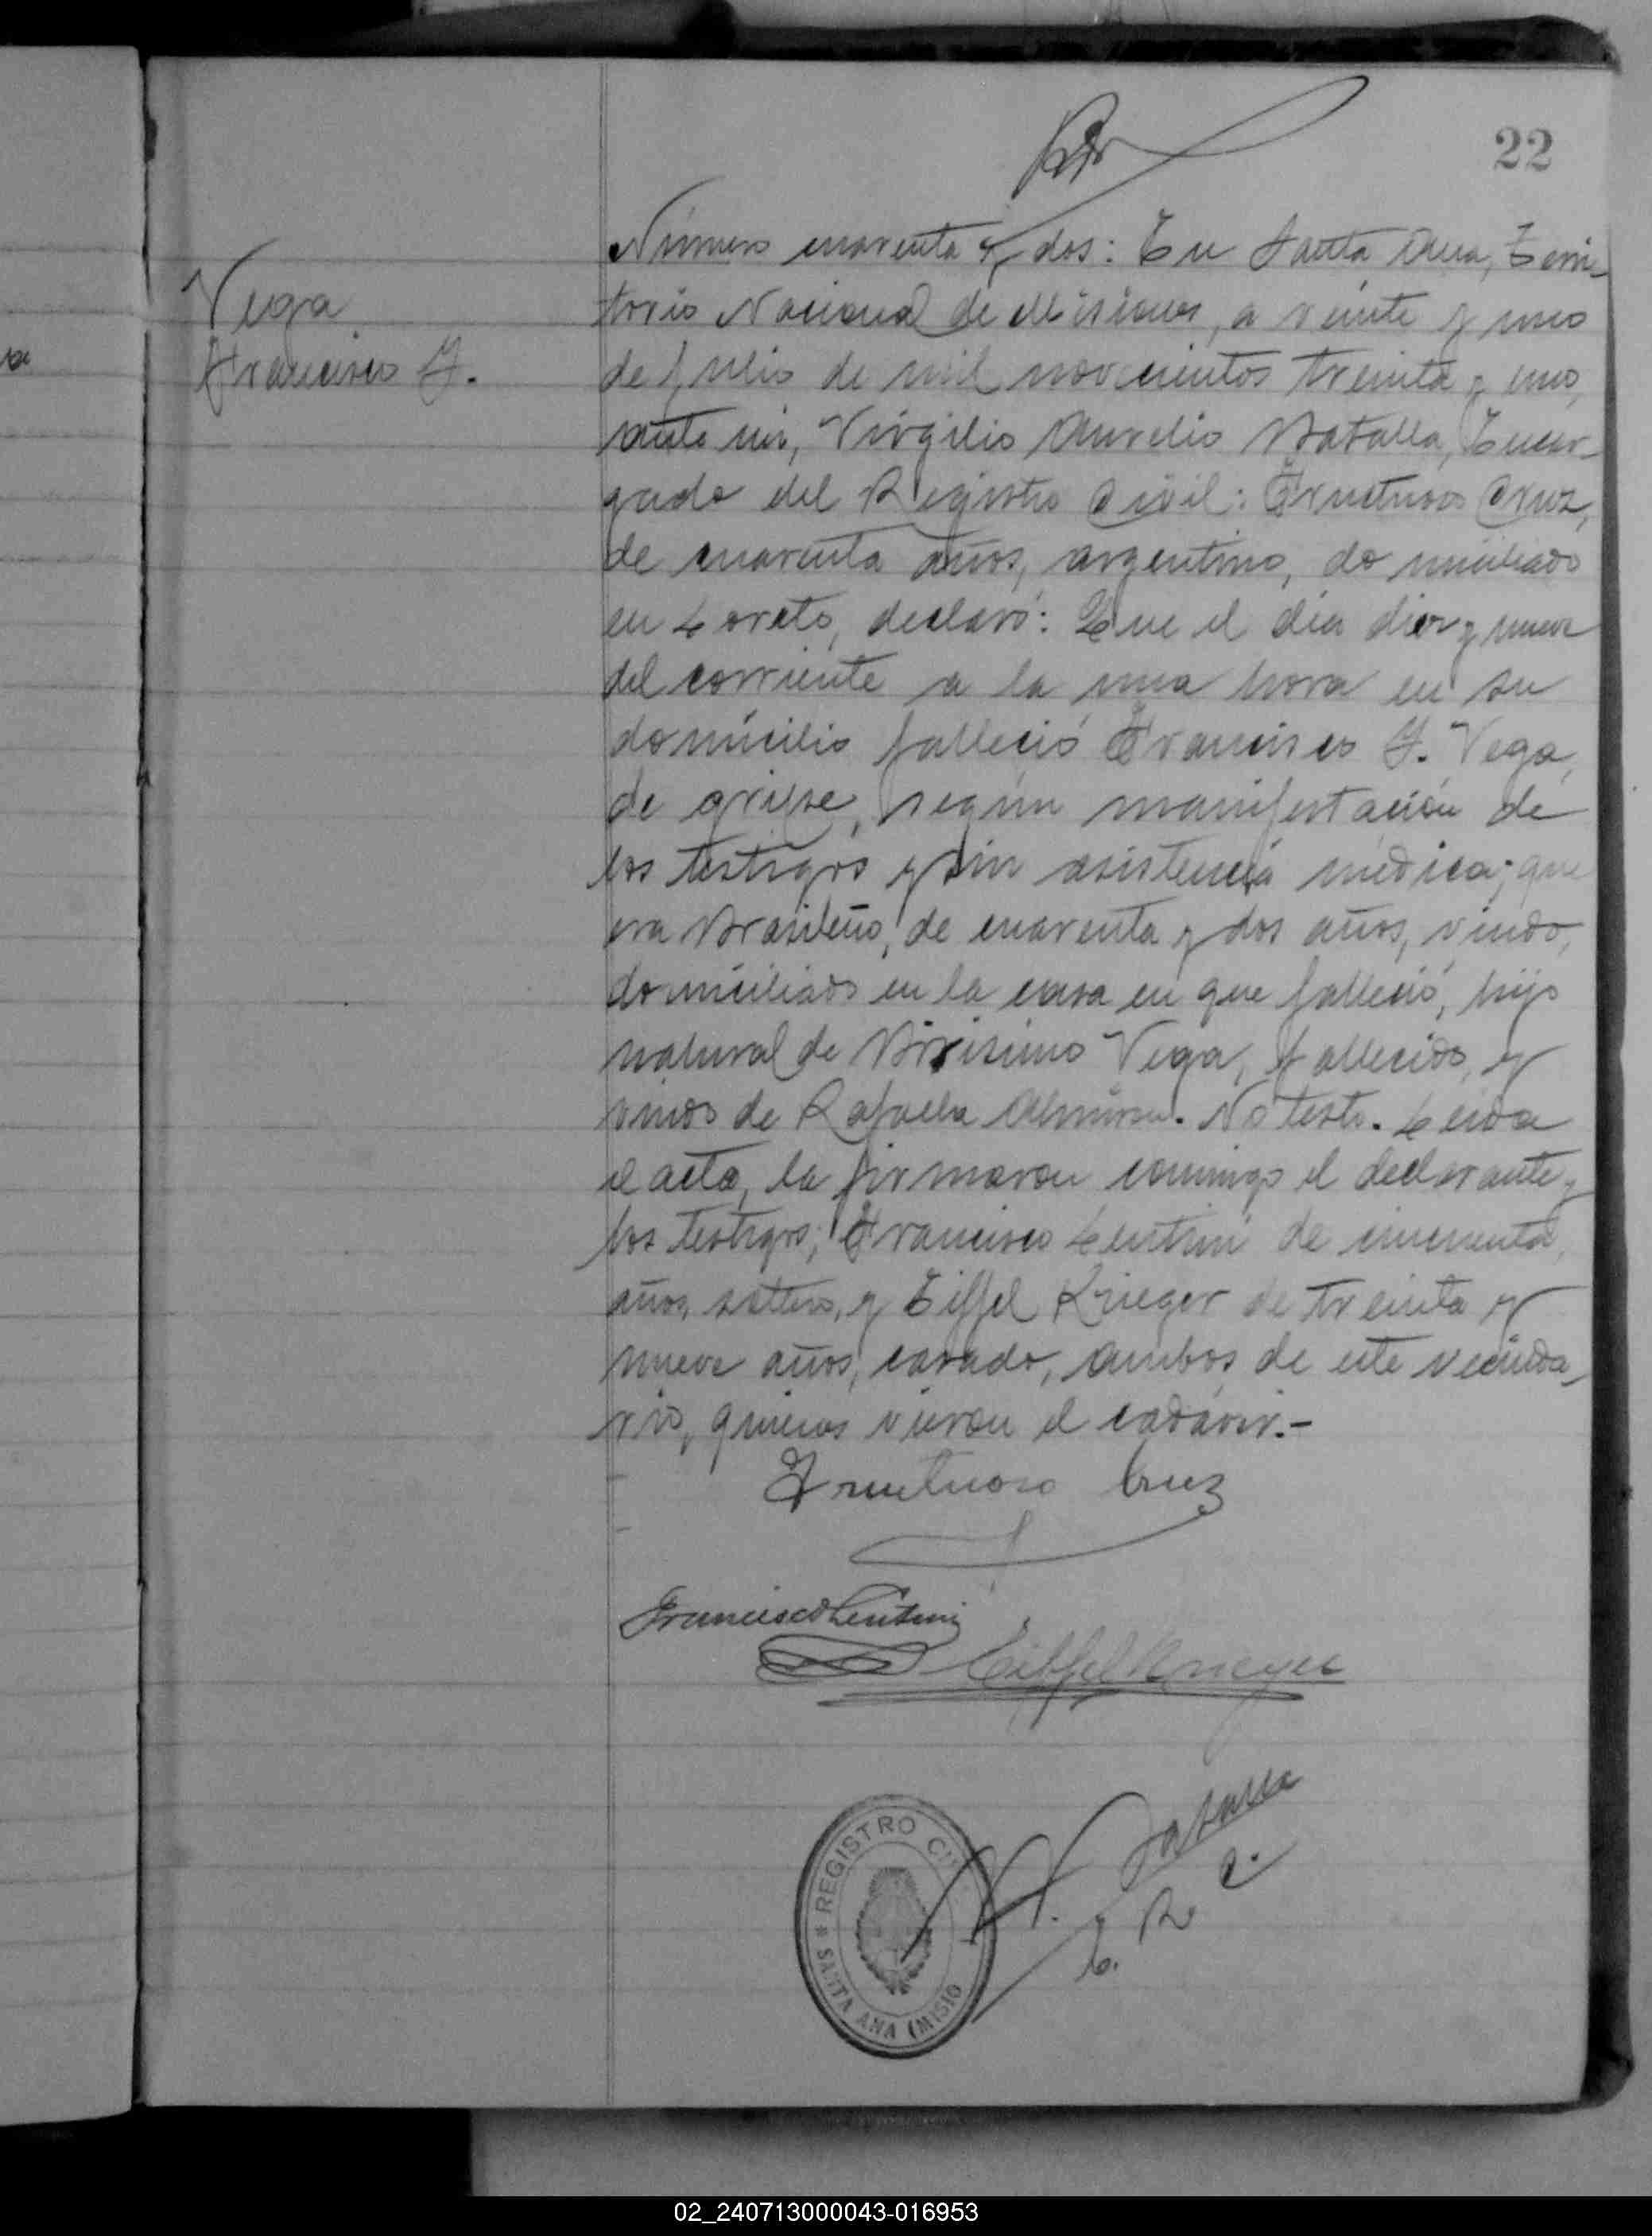 22
Vega
Francisco J.
Número cuarenta y dos: En Santa Ana, Terri-
torio Nacional de Misiones, a veinte y uno
de Julio de mil novecientos treinta y uno,
ante mi, Virgilio Aurelio Batalla, Encar-
gado del Registro Civil: Fructuoso Cruz,
de cuarenta años, argentino, domiciliado
en Loreto, declaró: Que el día diez y nueve
del corriente a la una hora en su
domicilio falleció Francisco J. Vega,
de gripe, según manifestación de
los testigos y sin asistencia médica; que
era Brasileño, de cuarenta y dos años, viudo,
domiciliado en la casa en que falleció, hijo
natural de Vega, fallecido, y
viudo de Rafaela No testó. Leída
el acta, la firmaron conmigo el declarante y
los testigos; Francisco Lentini de cincuenta
años, soltero, y Eiffel Krieger de treinta y
nueve años, casado, ambos de este vecinda-
rio, quienes vieron el cadáver.-
Fructuoso Cruz
Francisco Lentini
Eiffel Krieger
Batalla
E. R. C.
REGISTRO CIVIL
SANTA ANA (MISIO
02_240713000043-016953